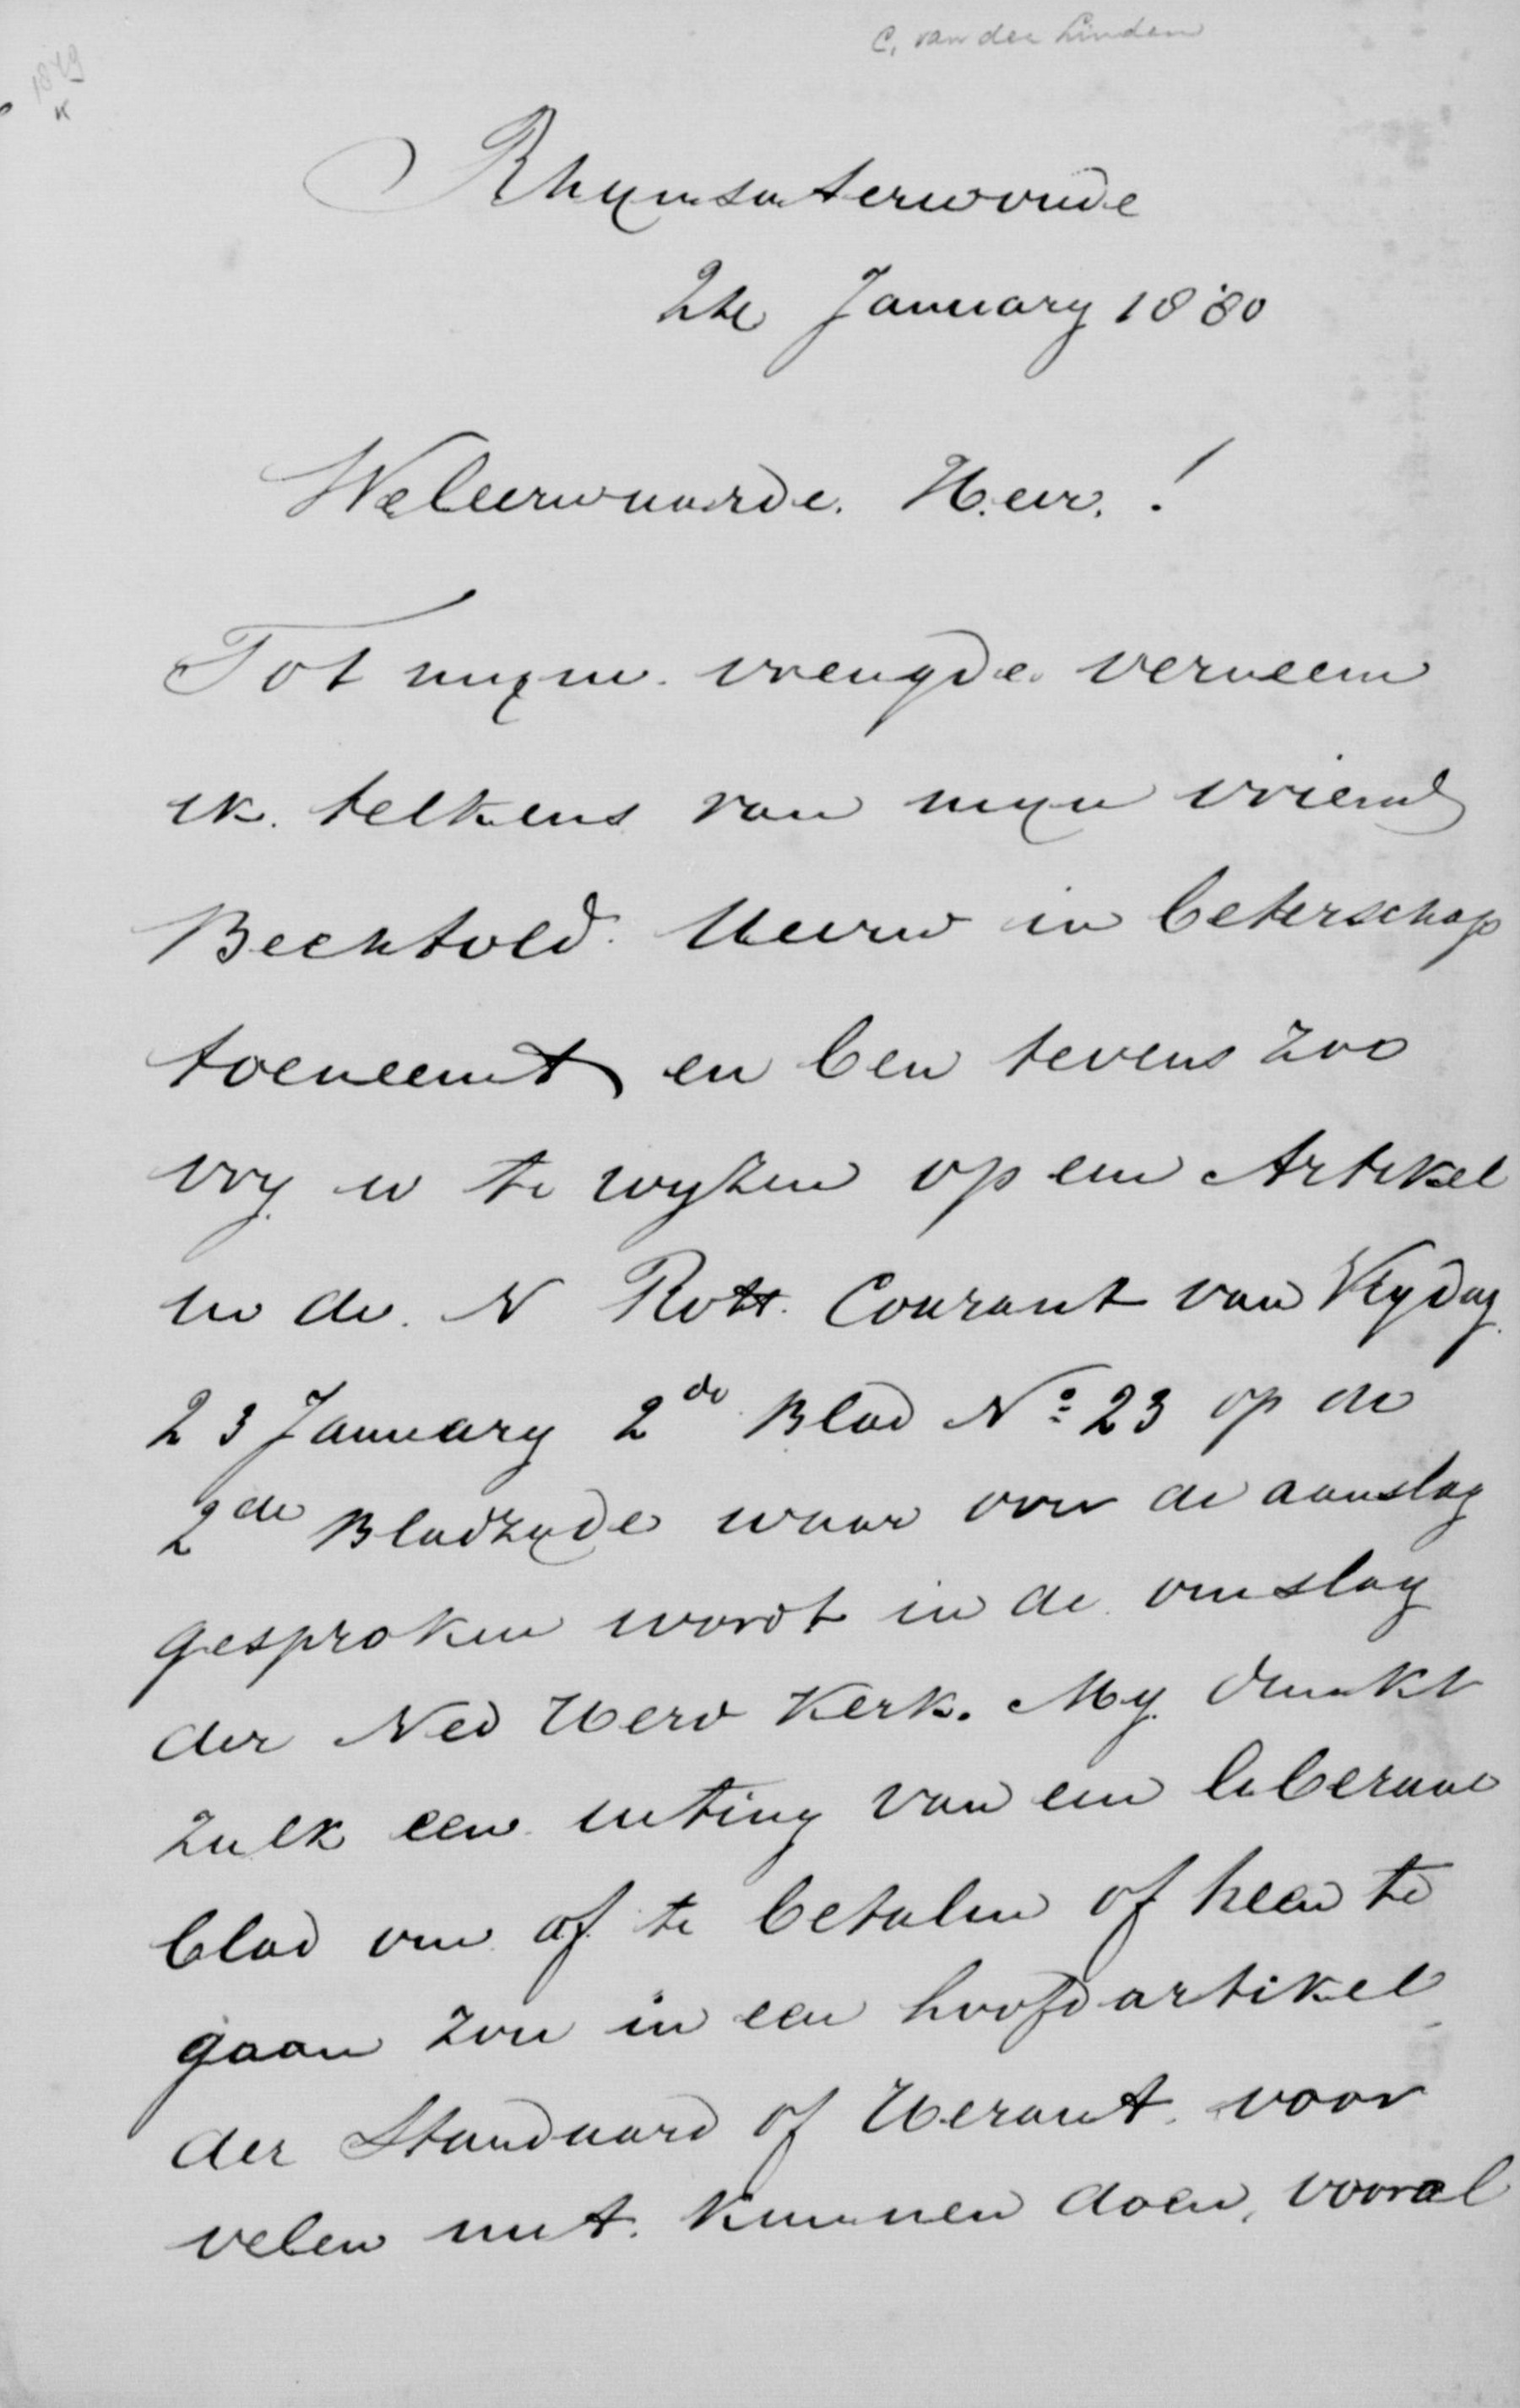 C. van der Linden
1849
K
Rhynsaterwoude
January 1880
Weleerwaarde. Heer. !
Tot myne vreugde verneem
ik telkens van myn vriend
Bechtold Uwer in beterschap
toeneemt en ben tevens zoo
vry u te wyzen op een Artikel
in de N Rott. Courant van Vrydag
23 January 2de Blad No 23 op de
2de Bladzyde waar over de aanslag
gesproken wordt in de omslag
der Ned Herv Kerk. My dunkt
zulk een uiting van een liberaal
blad om af te betalen of heen te
gaan zou in een hoofdartikel
der Standaard of Heraut voor
velen nut kunnen doen, vooral